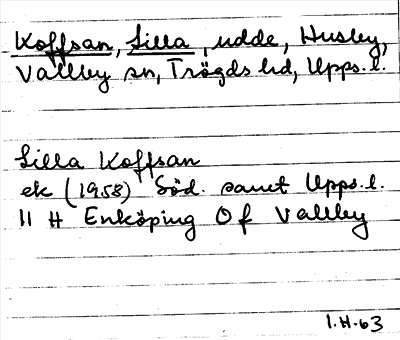 Koffsan, Lilla, udde, Husby,
Vallby sn, Trögds hd, Upps. l.
Lilla Koffsan
ek (1958) Söd. samt Upps. l.
11 H Enköping Of Vallby
1.H.63